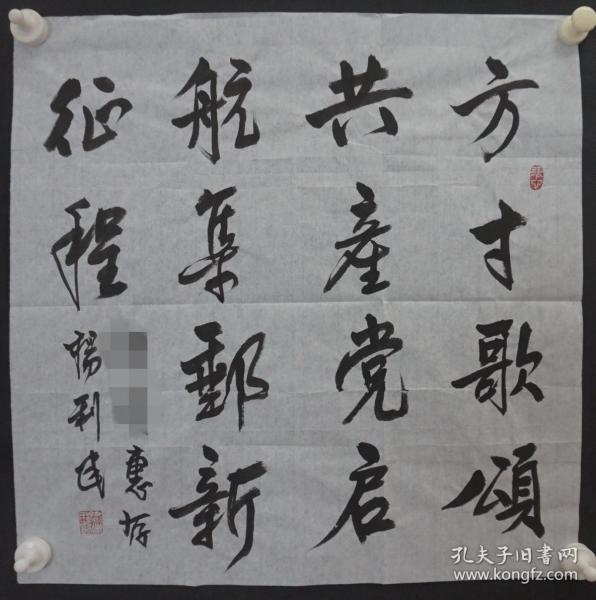 方寸歌頌
共產党启
航集郵新
征程
惠存
楊利民
孔夫子旧書网
www.kongfz.com